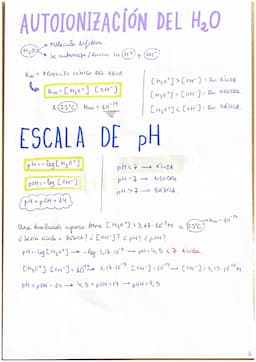 AUTOIONIZACIÓN DEL H₂O
H₂O → Molécula anfótera.
→ Se autoioniza/disocia en H⁺ y OH⁻
Kw = PRODUCTO IÓNICO DEL AGUA
Kw = [H₃O⁺] [OH⁻]
A 25°C Kw = 10⁻¹⁴
[H₃O⁺] > [OH⁻] : Dis. ÁCIDA
[H₃O⁺] = [OH⁻] : Dis. NEUTRA
[H₃O⁺] < [OH⁻] : Dis. BÁSICA.
ESCALA DE pH
pH = -log [H₃O⁺]
pOH = -log [OH⁻]
pH + pOH = 14
pH < 7 → ÁCIDA
pH = 7 → NEUTRA
pH > 7 → BÁSICA.
Una disolución acuosa tiene [H₃O⁺] = 3,17·10⁻⁵ M a 25°C → Kw = 10⁻¹⁴
¿Será ácida o básica? ¿[OH⁻]? ¿pH? ¿pOH?
pH = -log [H₃O⁺] → -log 3,17·10⁻⁵ → pH = 4,5 < 7 Ácida.
[H₃O⁺]·[OH⁻] = 10⁻¹⁴ → 3,17·10⁻⁵·[OH⁻] = 10⁻¹⁴ → [OH⁻] = 3,15·10⁻¹⁰ M
pH + pOH = 14 → 4,5 + pOH = 14 → pOH = 9,5